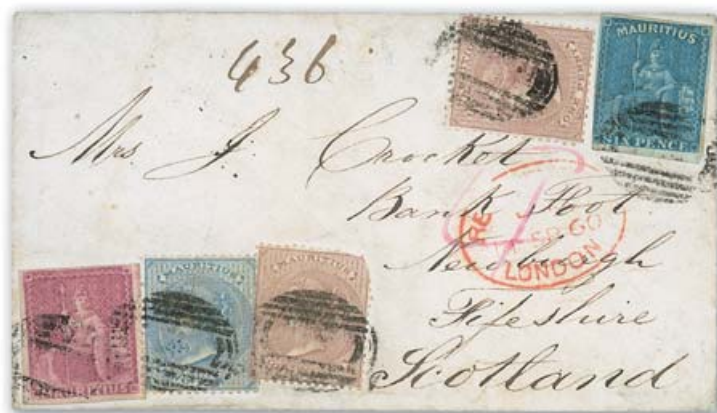 436
MAURITIUS
SIX PENCE
Mrs. J. Crockot
Bank Foot
Newburgh
Fifeshire
Scotland
LONDON
MAURITIUS
MAURITIUS